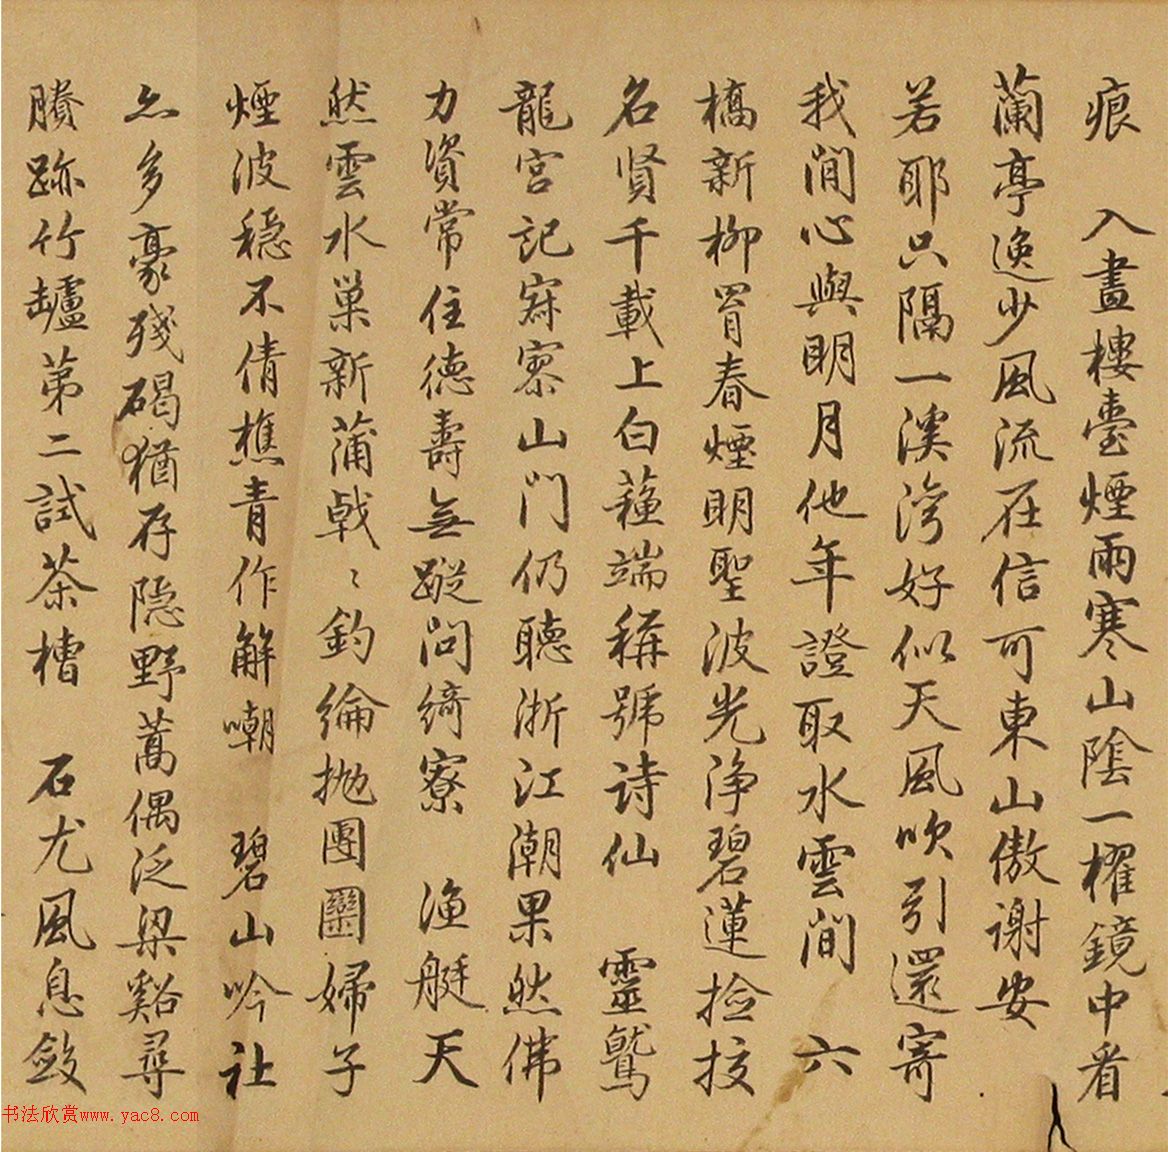 痕 入畫樓臺煙雨寒山陰一櫂鏡中看
蘭亭逸少風流在信可東山傲謝安
若耶只隔一溪灣好似天風吹引還寄
我閒心與明月他年證取水雲間 六
橋新柳罥春煙明聖波光淨碧蓮撿挍
名賢千載上白蘓端稱號詩仙 靈鷲
龍宮記寂寥山門仍聽浙江潮果然佛
力資常住德壽無蹤問綺寮 漁艇天
然雲水巢新蒲戟〻釣綸拋團圞婦子
煙波穩不倩樵青作解嘲 碧山吟社
久多豪殘碣猶存隱野蒿偶泛梁谿尋
賸跡竹罏苐二試茶槽 石尤風息斂
书法欣赏www.yac8.com